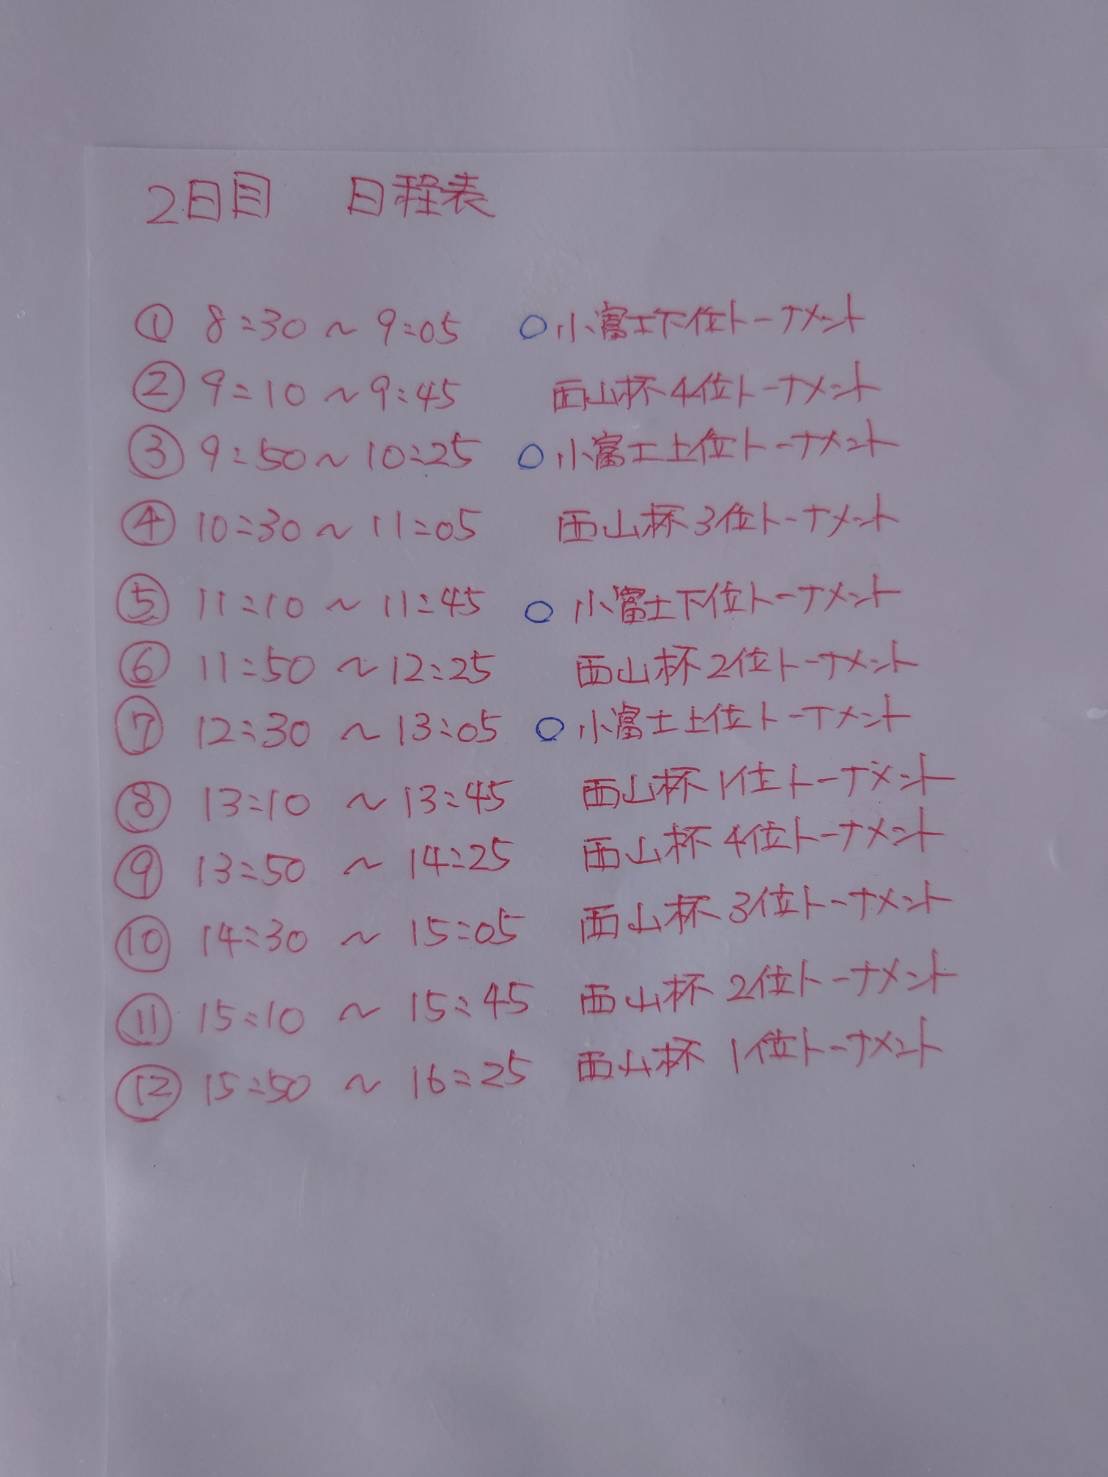 2日目 日程表
① 8:30～9:05 ○小富士下位トーナメント
② 9:10～9:45 西山杯4位トーナメント
③ 9:50～10:25 ○小富士上位トーナメント
④ 10:30～11:05 西山杯3位トーナメント
⑤ 11:10～11:45 ○小富士下位トーナメント
⑥ 11:50～12:25 西山杯2位トーナメント
⑦ 12:30～13:05 ○小富士上位トーナメント
⑧ 13:10～13:45 西山杯1位トーナメント
⑨ 13:50～14:25 西山杯4位トーナメント
⑩ 14:30～15:05 西山杯3位トーナメント
⑪ 15:10～15:45 西山杯2位トーナメント
⑫ 15:50～16:25 西山杯1位トーナメント